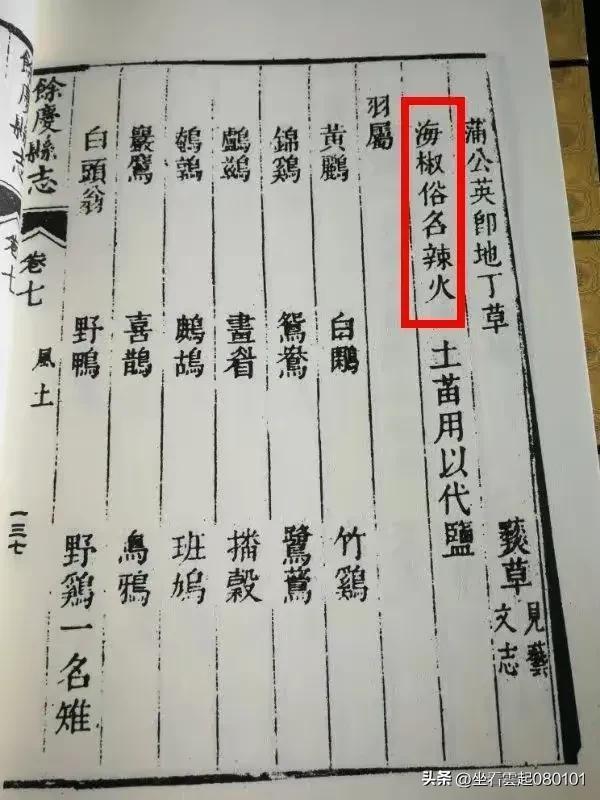 蒲公英即地丁草 蓺草 見藝文志
海椒俗名辣火 土苗用以代鹽
羽屬
黃鸝 白鷴 竹鷄
錦鷄 鴛鴦 鷺鷥
鸕鷀 畫眉 播穀
鵪鶉 鷓鴣 班鳩
巖鷹 喜鵲 烏鴉
白頭翁 野鴨 野鷄一名雉
餘慶縣志 卷七 風土 一三七
餘慶縣志 卷七
头条 @坐石雲起080101